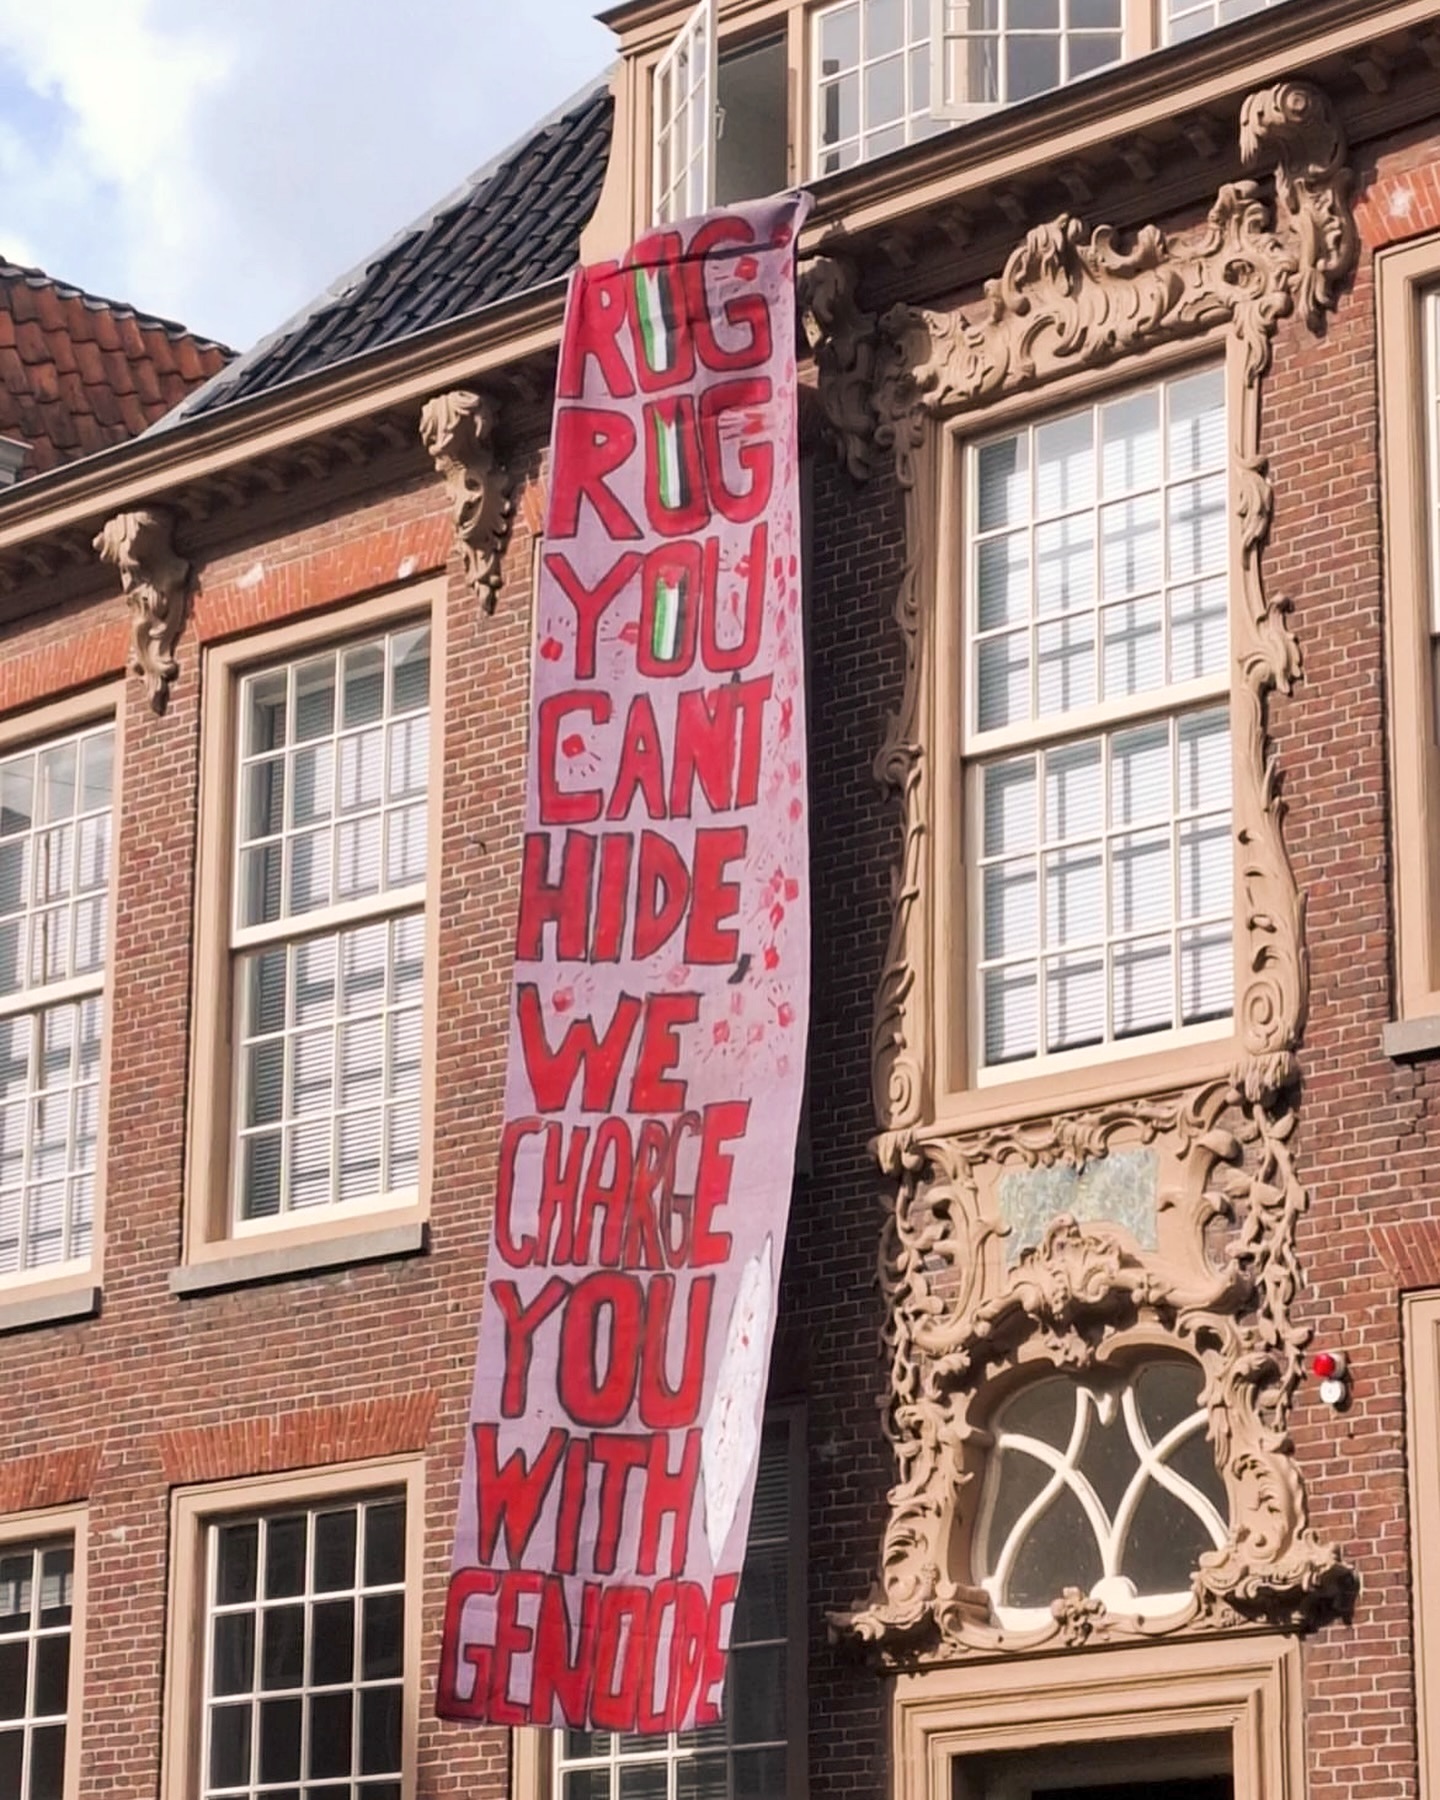 RUG
RUG
YOU
CANT
HIDE,
WE
CHARGE
YOU
WITH
GENOCIDE